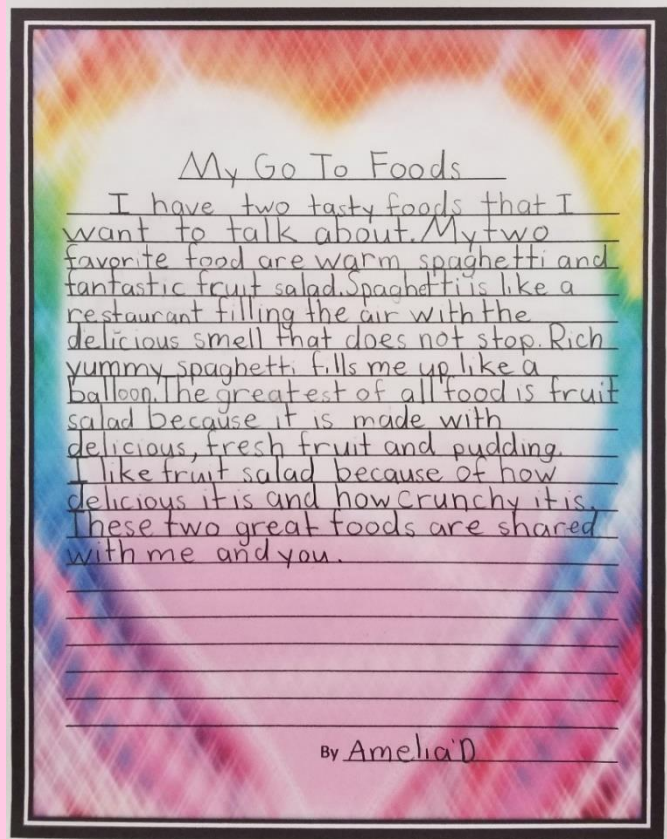 My Go To Foods
I have two tasty foods that I
want to talk about. My two
favorite food are warm spaghetti and
fantastic fruit salad. Spaghetti is like a
restaurant filling the air with the
delicious smell that does not stop. Rich
yummy spaghetti fills me up like a
balloon. The greatest of all food is fruit
salad because it is made with
delicious, fresh fruit and pudding.
I like fruit salad because of how
delicious it is and how crunchy it is.
These two great foods are shared
with me and you.
By Amelia D